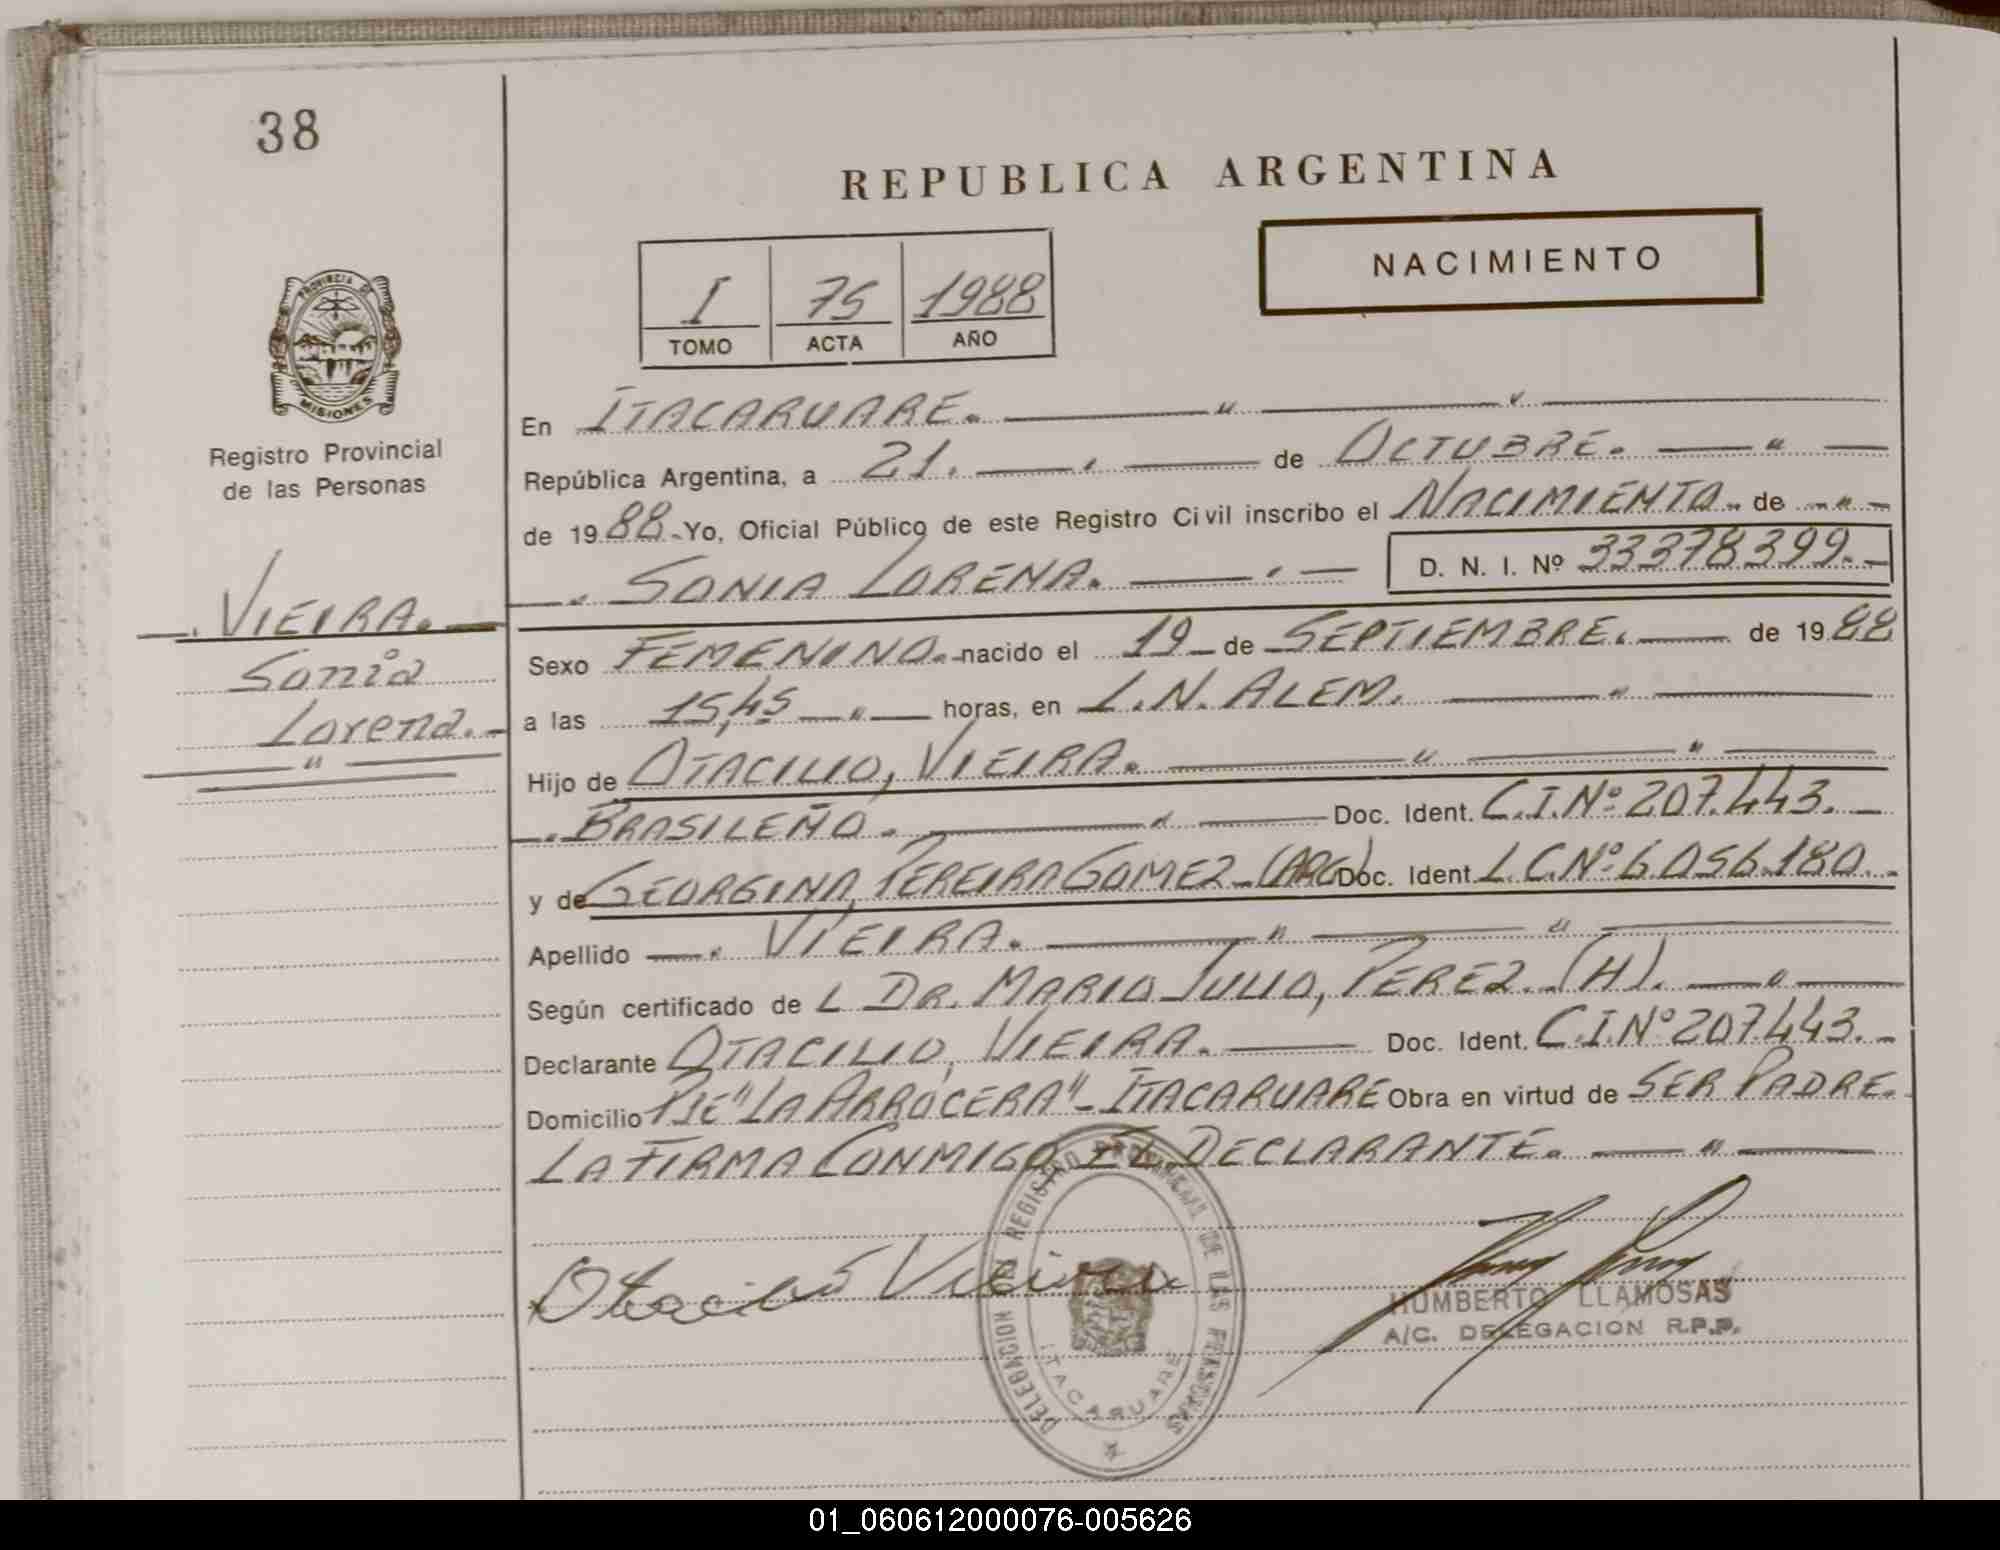 38
REPUBLICA ARGENTINA
NACIMIENTO
I 75 1988
TOMO ACTA AÑO
PROVINCIA DE
MISIONES
Registro Provincial
de las Personas
VIEIRA.
Sonia
Lorena.
En ITACARUARE.
República Argentina, a 21. de OCTUBRE.
de 1988 Yo, Oficial Público de este Registro Civil inscribo el NACIMIENTO de
SONIA LORENA. D. N. I. Nº 33378399.
Sexo FEMENINO. nacido el 19 de SEPTIEMBRE. de 1988
a las 15,45 horas, en L.N. ALEM.
Hijo de OTACILIO, VIEIRA.
BRASILEÑO. Doc. Ident. C.I.Nº 207.443.
y de GEORGINA, PEREIRA GOMEZ (ARG) Doc. Ident. L.C.Nº 6.056.180.
Apellido VIEIRA.
Según certificado de L DR. MARIO JULIO, PEREZ. (H).
Declarante OTACILIO, VIEIRA. Doc. Ident. C.I.Nº 207.443.
Domicilio PJE "LA ARROCERA" - ITACARUARE Obra en virtud de SER PADRE.
LA FIRMA CONMIGO EL DECLARANTE.
Otacilio Vieira
DELEGACION DEL REGISTRO PROVINCIAL DE LAS PERSONAS
ITACARUARE
HUMBERTO LLAMOSAS
A/C. DELEGACION R.P.P.
01_060612000076-005626